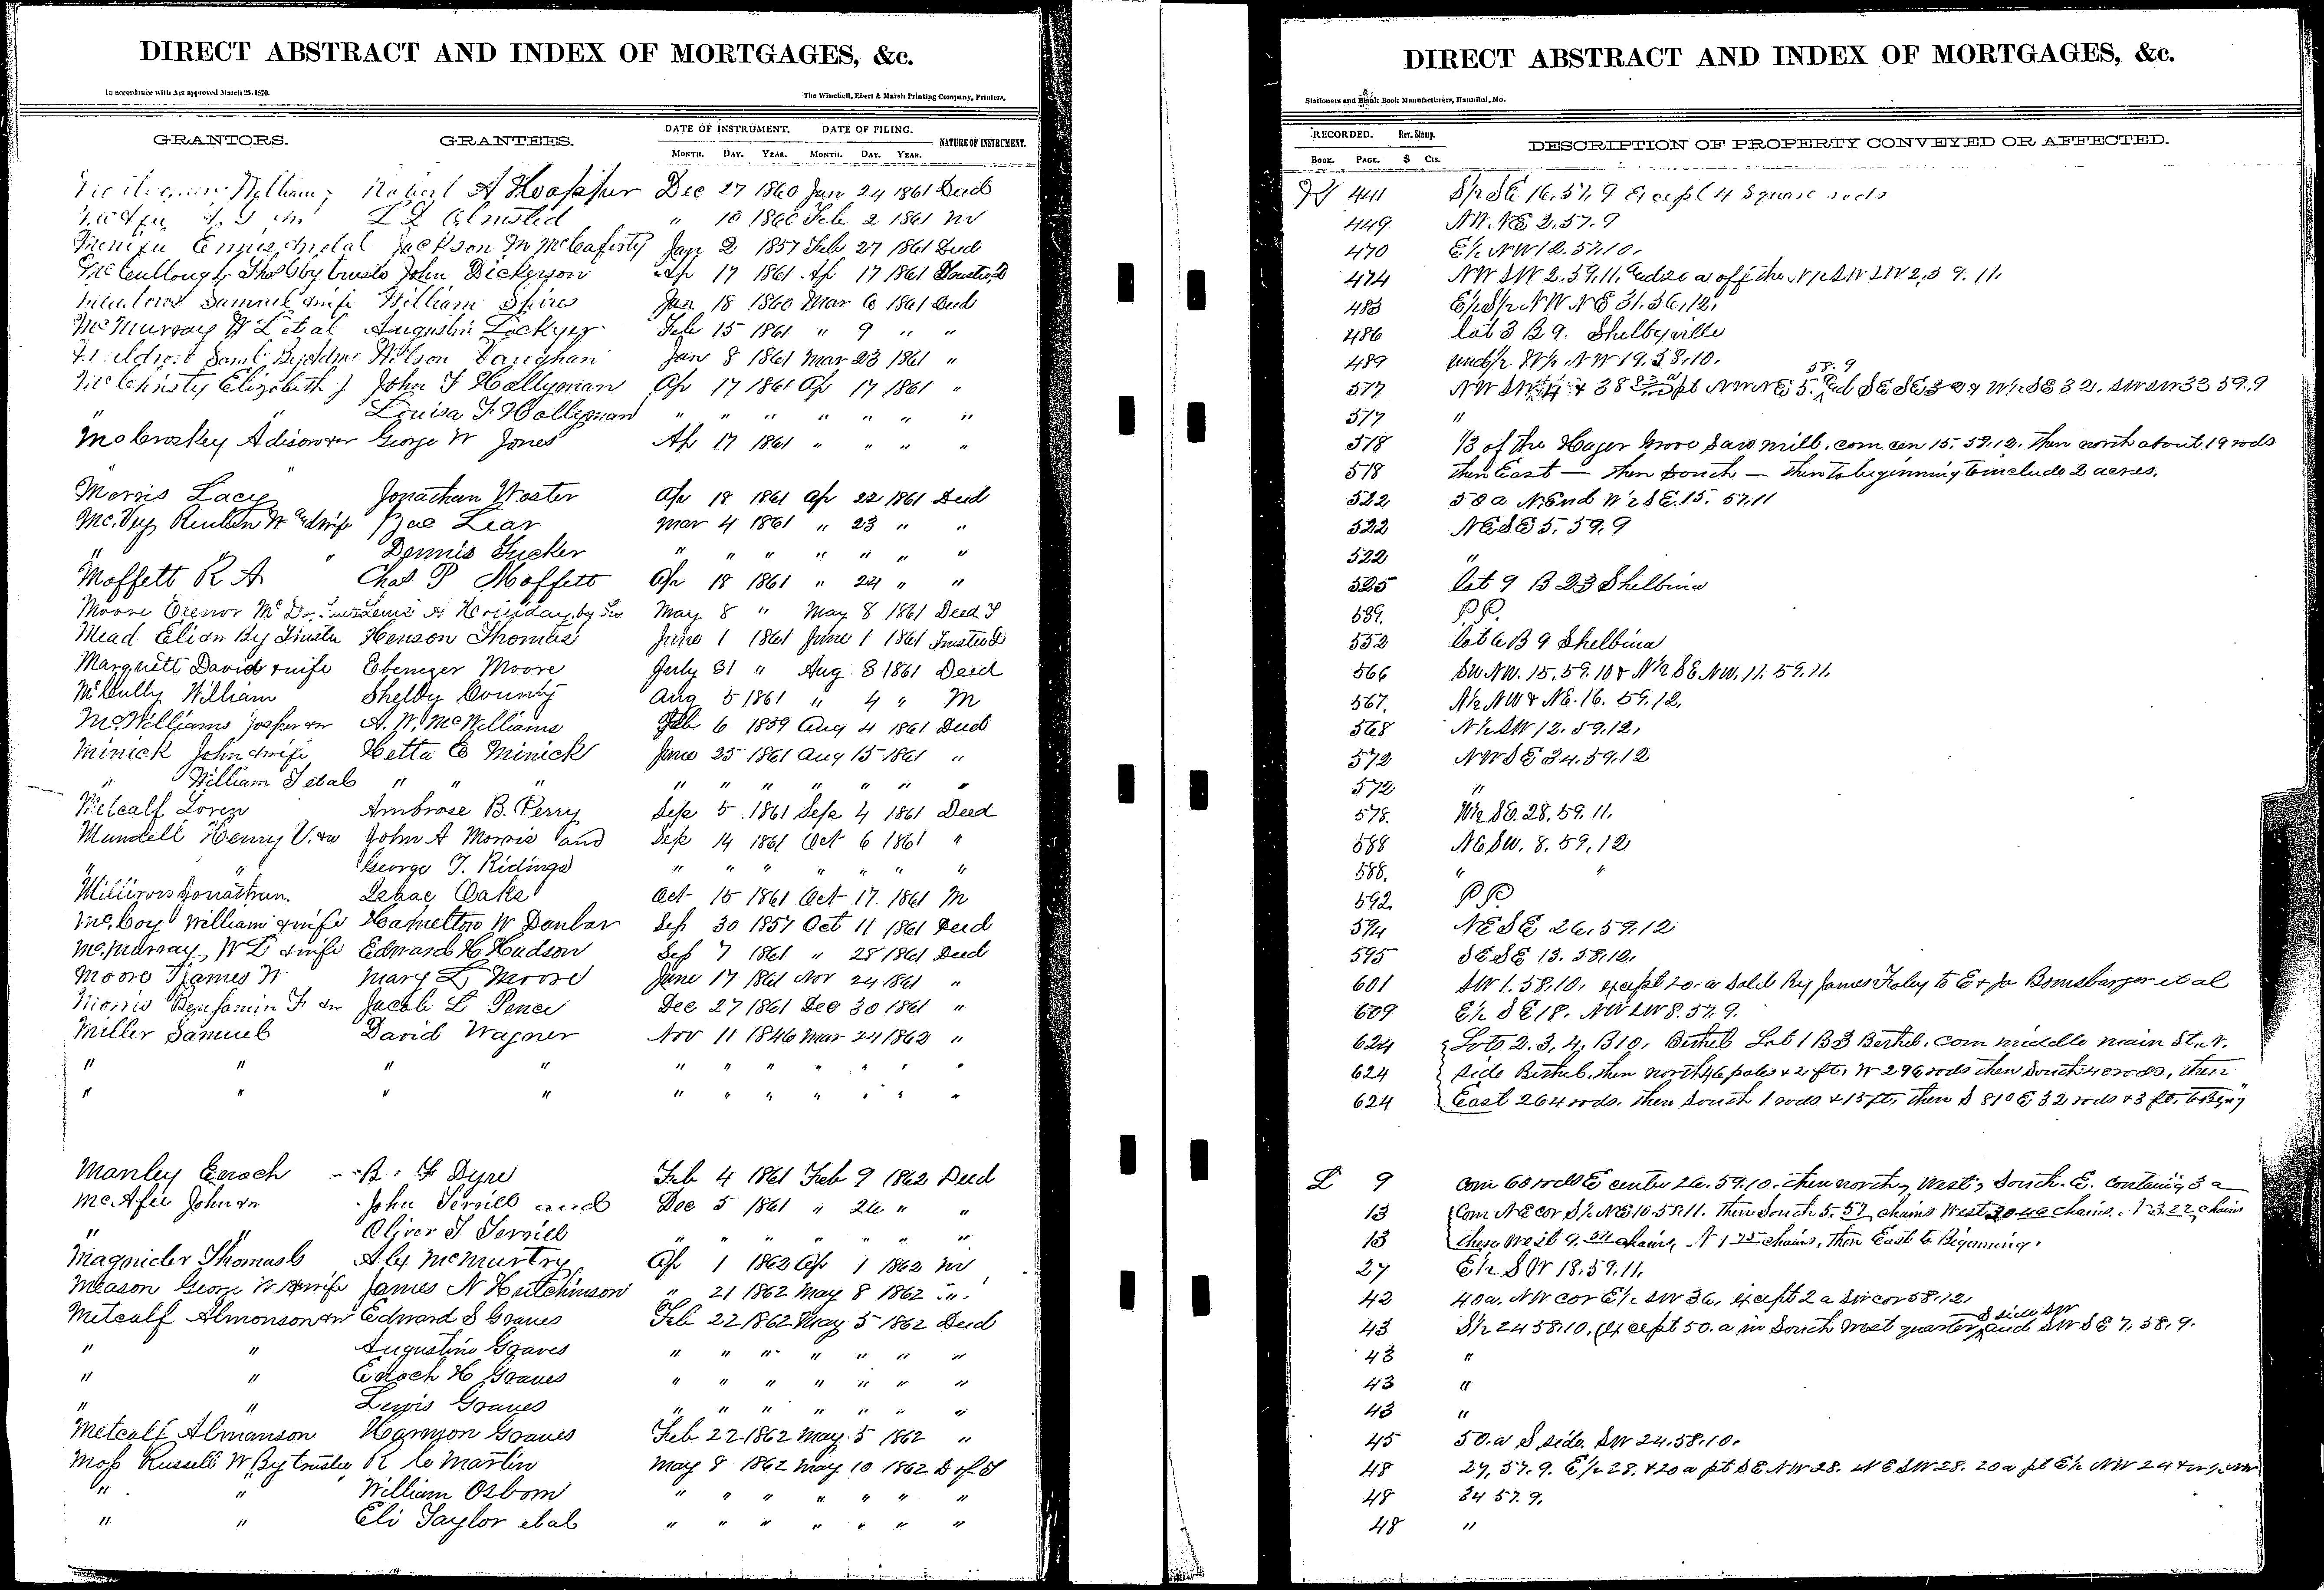 DIRECT ABSTRACT AND INDEX OF MORTGAGES, &c.
In accordance with Act approved March 25, 1870.
The Winchell, Ebert & Marsh Printing Company, Printers,
GRANTORS. GRANTEES. DATE OF INSTRUMENT. DATE OF FILING. NATURE OF INSTRUMENT.
MONTH. DAY. YEAR. MONTH. DAY. YEAR.
William Robert A Dec 27 1860 Jan 24 1861 Deed
Olmsted " 10 1860 Feb 2 1861
Jackson M McCaferty Jany 2 1857 Feb 27 1861 Deed
McCullough by trustee John Dickerson Ap 17 1861 Ap 17 1861
Samuel & wife William Spires Jan 18 1860 Mar 6 1861 Deed
McMurray W L et al Augustin Lockyer Feb 15 1861 " 9 " "
Wilson Vaughan Jan 8 1861 Mar 23 1861 "
McChristy Elizabeth J John F Hollyman Ap 17 1861 Ap 17 1861 "
" " Louisa F. Hollyman " " " " " " "
McCroskey George W Jones Ap 17 1861 " " " "
Morris Lacy Jonathan Ap 18 1861 Ap 22 1861 Deed
McVey Reuben W & wife Lear Mar 4 1861 " 23 " "
" " Dennis Tucker " " " " " " "
Moffett R A Chas P Moffett Ap 18 1861 " 24 " "
Moore May 8 " May 8 1861 Deed T
Mead By Trustee Henson Thomas June 1 1861 June 1 1861 Trustee D
Marquett David & wife Ebenezer Moore July 31 " Aug 3 1861 Deed
McCully William Shelby County Aug 5 1861 " 4 " M
McWilliams A. W. McWilliams Feb 6 1859 Aug 4 1861 Deed
Minick John & wife Hetta C Minick June 25 1861 Aug 15 1861 "
" William T et al " " " " " " " " " "
Metcalf Loren Ambrose B. Perry Sep 5 1861 Sep 4 1861 Deed
Mundell Henry V. & w John A Morris and Sep 14 1861 Oct 6 1861 "
" " George T. Ridings " " " " " " "
Jonathan. Isaac Oaks Oct 15 1861 Oct 17. 1861 M
McCoy William & wife Hamelton W Dunbar Sep 30 1857 Oct 11 1861 Deed
McMurray, W L & wife Edward H Hudson Sep 7 1861 " 28 1861 Deed
Moore James W Mary L Moore June 17 1861 Nov 24 1861 "
Morris Benjamin F & w Jacob L Pence Dec 27 1861 Dec 30 1861 "
Miller Samuel David Wagner Nov 11 1846 Mar 24 1862 "
" " " " " " " " " " "
" " " " " " " " " " "
Manley Enoch B. F Dyre Feb 4 1861 Feb 9 1862 Deed
McAfee John & w John Terrill and Dec 5 1861 " 26 " "
" " Oliver T Terrill " " " " " " "
Magruder Thomas Alex McMurtry Ap 1 1862 Ap 1 1862 M
Meason George W & wife James N Hutchinson " 21 1862 May 8 1862 " "
Metcalf Almonson & w Edward S Graves Feb 22 1862 May 5 1862 Deed
" " Augustine Graves " " " " " " "
" " Enoch H Graves " " " " " " "
" " Lewis Graves " " " " " " "
Metcalf Almanson Harmon Graves Feb 22 1862 May 5 1862 "
Moss Russell W By trustee R C Martin May 8 1862 May 10 1862 D of T
" " William Osborn " " " " " " "
" " Eli Taylor et al " " " " " " "
DIRECT ABSTRACT AND INDEX OF MORTGAGES, &c.
Stationers and Blank Book Manufacturers, Hannibal, Mo.
RECORDED. Rev. Stamp. DESCRIPTION OF PROPERTY CONVEYED OR AFFECTED.
BOOK. PAGE. $ Cts.
441 S½ SE 16, 57, 9 Except 4 Square rods
449 NW. NE 2. 57. 9
470 E½ NW 12. 57. 10.
474 NW SW 2. 59. 11. and 20 a off the
483 E½ S½ NW NE 31. 36, 12,
486 Lot 3 B 9. Shelbyville
489 W½ NW 19. 58. 10.
517 NW SW
517 "
518 1/3 of the Hager Grove Saw mill, com cen 15. 59. 12. then north about 19 rods
518 then East — then South — then to beginning to include 2 acres.
522 50 a N End W½ SE. 15. 57. 11
522 NE SE 5. 59. 9
522 "
525 Lot 9 B 23 Shelbina
539. P.P.
552 Lot 6 B 9 Shelbina
566 SW NW. 15. 59. 10 & N½ SE NW. 11. 59. 11.
567. N½ NW & NE. 16. 59. 12.
568 N½ SW 12. 59. 12.
572 NW SE 34. 59. 12
572 "
578. W½ SE. 28. 59. 11.
588 NE SW. 8. 59. 12
588. " "
592 P.P.
594 NE SE 26. 59. 12
595 SE SE 13. 58. 12.
601 SW 1. 58. 10, except 20. a Sold By James Foley to E & Jn Bomsbarger et al
609 E½ SE 18. NW SW 8. 57. 9.
624 Lots 2. 3, 4, B 10, Bethel Lot 1 B 3 Bethel. Com middle main St. N.
624 side Bethel, then north 46 poles & 2 ft, W 296 rods then South 40 rods, then
624 East 264 rods. then South 1 rods & 13 ft, then S 81° E 32 rods & 3 ft. to Beg
L 9 Com 60 rods E center 26. 59. 10. then north, West, South. E. containing 3 a
13 Com NE cor S½ NE 10. 58. 11. then South 5. 57 chains West 20.40 chains.
13 then West chains, N 1 chains, then East to Beginning.
27 E½ SW 18. 59. 11.
42 40 a. NW cor E½ SW 36, except 2 a SW cor 58. 12.
43 S½ 24 58. 10. (Except 50. a in South West quarter) and S side SW SW SE 7. 58. 9.
43 "
43 "
43 "
45 50. a S side. SW 24. 58. 10.
48 27, 57. 9. E½ 28, & 20 a pt SE NW 28. NE SW 28. 20 a pt E½ NW 24
48 34 57. 9.
48 "